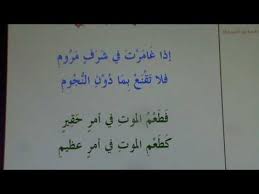 إِذَا غَامَرْتَ فِي شَرَفٍ مَرُومٍ
فَلا تَقْنَعْ بِمَا دُوْنَ النُّجُومِ
فَطَعْمُ الموتِ في أمرٍ حَقيرٍ
كَطَعْمِ الموتِ في أمرٍ عظيمِ